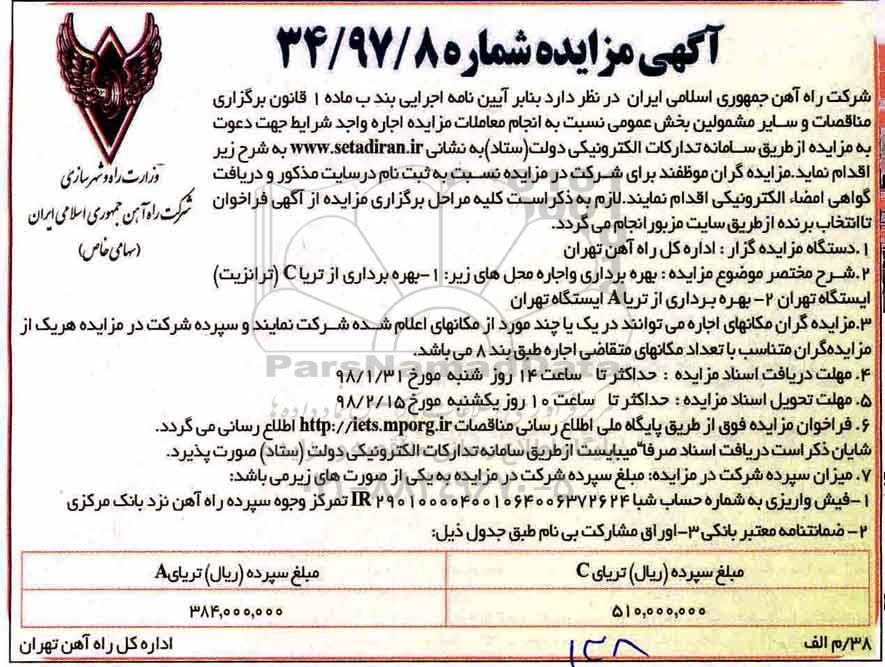 آگهی مزایده شماره ۳۴/۹۷/۸
وزارت راه و شهرسازی
شرکت راه آهن جمهوری اسلامی ایران
(سهامی خاص)
شرکت راه آهن جمهوری اسلامی ایران در نظر دارد بنابر آیین نامه اجرایی بند ب ماده ۱ قانون برگزاری
مناقصات و سایر مشمولین بخش عمومی نسبت به انجام معاملات مزایده اجاره واجد شرایط جهت دعوت
به مزایده از طریق سامانه تدارکات الکترونیکی دولت(ستاد)به نشانی www.setadiran.ir به شرح زیر
اقدام نماید.مزایده گران موظفند برای شرکت در مزایده نسبت به ثبت نام درسایت مذکور و دریافت
گواهی امضاء الکترونیکی اقدام نمایند.لازم به ذکر است کلیه مراحل برگزاری مزایده از آگهی فراخوان
تاانتخاب برنده ازطریق سایت مزبورانجام می گردد.
۱.دستگاه مزایده گزار : اداره کل راه آهن تهران
۲.شرح مختصر موضوع مزایده : بهره برداری واجاره محل های زیر: ۱-بهره برداری از تریا C (ترانزیت)
ایستگاه تهران ۲- بهره برداری از تریا A ایستگاه تهران
۳.مزایده گران مکانهای اجاره می توانند در یک یا چند مورد از مکانهای اعلام شده شرکت نمایند و سپرده شرکت در مزایده هریک از
مزایده‌گران متناسب با تعداد مکانهای متقاضی اجاره طبق بند ۸ می باشد.
۴. مهلت دریافت اسناد مزایده : حداکثر تا ساعت ۱۴ روز شنبه مورخ ۹۸/۱/۳۱
۵. مهلت تحویل اسناد مزایده : حداکثر تا ساعت ۱۰ روز یکشنبه مورخ ۹۸/۲/۱۵
۶. فراخوان مزایده فوق از طریق پایگاه ملی اطلاع رسانی مناقصات http://iets.mporg.ir اطلاع رسانی می گردد.
شایان ذکر است دریافت اسناد صرفا"میبایست ازطریق سامانه تدارکات الکترونیکی دولت (ستاد) صورت پذیرد.
۷. میزان سپرده شرکت در مزایده: مبلغ سپرده شرکت در مزایده به یکی از صورت های زیرمی باشد:
۱-فیش واریزی به شماره حساب شبا IR ۲۹۰۱۰۰۰۰۴۰۰۱۰۶۴۰۰۶۳۷۲۶۲۴ تمرکز وجوه سپرده راه آهن نزد بانک مرکزی
۲- ضمانتنامه معتبر بانکی ۳-اوراق مشارکت بی نام طبق جدول ذیل:
مبلغ سپرده (ریال) تریای C مبلغ سپرده (ریال) تریای A
۵۱۰,۰۰۰,۰۰۰ ۳۸۴,۰۰۰,۰۰۰
۳۸/م الف ۱۳۸ اداره کل راه آهن تهران
ParsNamadData